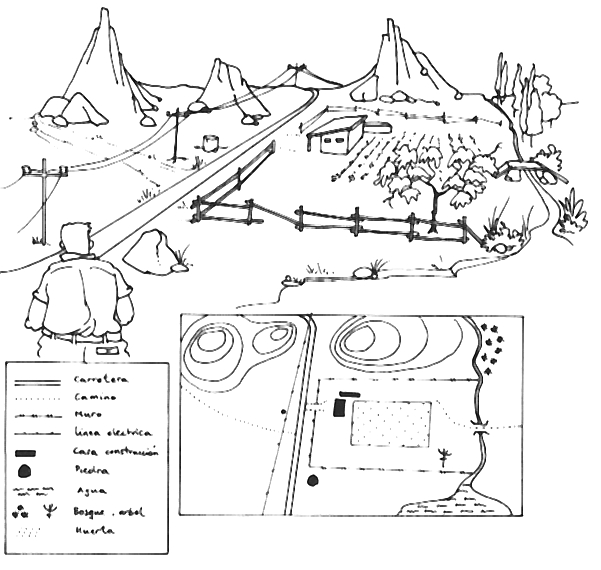 Carretera
Camino
Muro
linea electrica
Casa construcción
Piedra
Agua
Bosque, arbol
Huerta